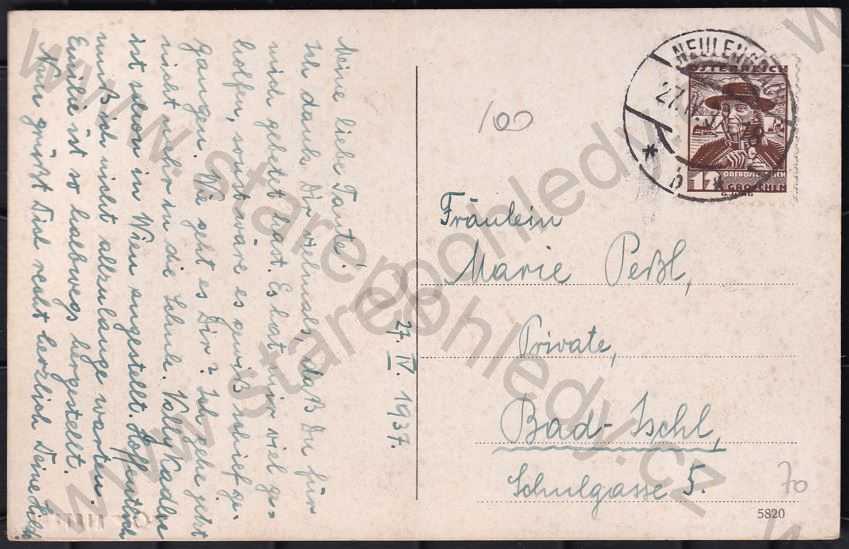 Meine liebe Tante!
Ich danke Dir vielmals, daß Du für
mich gebetet hast. Es hat mir viel ge-
holfen, sonst wäre es gewiß schief ge-
gangen. Wie geht es Dir? Ich gehe jetzt
nicht mehr in die Schule. Vally Kadler
ist schon in Wien angestellt. Hoffentlich
muß ich nicht allzulange warten.
Emilie ist so halbwegs hergestellt.
Nun grüßt Dich recht herzlich Deine
27. IV. 1937.
100
NEULENG
27.IV.37
* b *
ÖSTERREICH
OBERÖSTERREICH
12 GROSCHEN
Fräulein
Marie Peßl,
Private,
Bad-Ischl,
Schulgasse 5.
70
5820
www.starepohledy.cz
www.starepohledy.cz